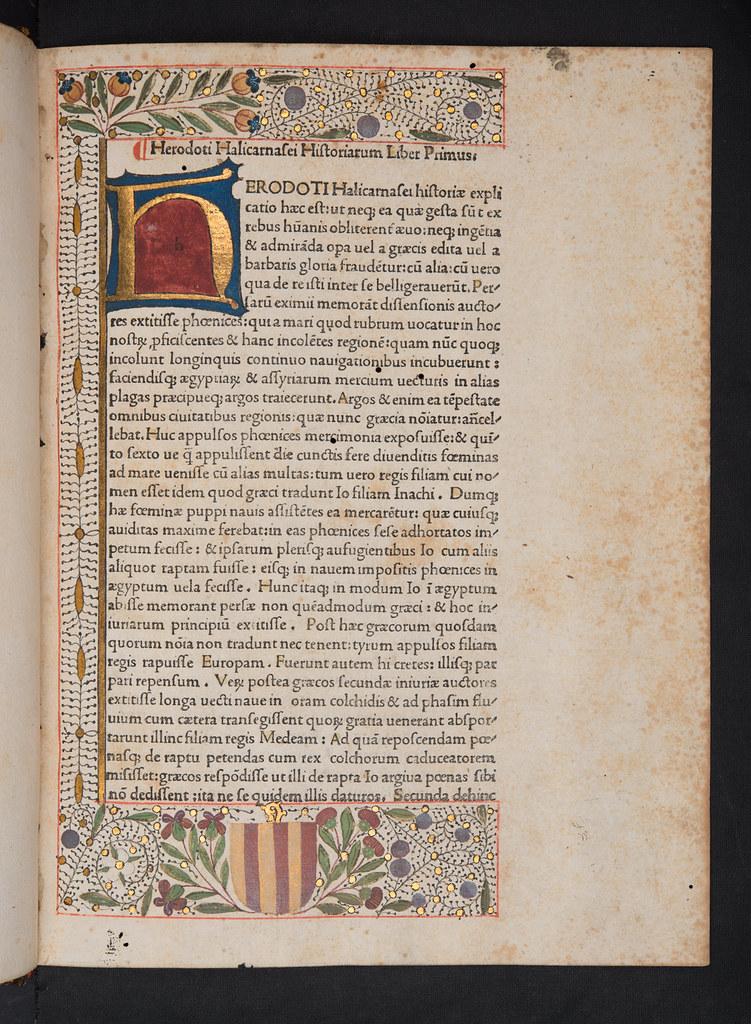 Herodoti Halicarnasei Historiarum Liber Primus.
HERODOTI Halicarnasei historiæ expli
catio hæc est: ut neq; ea quæ gesta sūt ex
rebus hūanis obliterent æuo: neq; ingētia
& admirāda opa uel a græcis edita uel a
barbaris gloria fraudētur: cū alia: cū uero
qua de re isti inter se belligerauerūt. Per⸗
sarū eximii memorāt dissensionis aucto⸗
res extitisse phœnices: qui a mari quod rubrum uocatur in hoc
nostꝝ ꝓficiscentes & hanc incolētes regionē: quam nūc quoq;
incolunt longinquis continuo nauigationibus incubuerunt:
faciendisq; ægyptiaꝝ & assyriarum mercium uecturis in alias
plagas præcipueq; argos traiecerunt. Argos & enim ea tēpestate
omnibus ciuitatibus regionis: quæ nunc græcia nōiatur: āncel⸗
lebat. Huc appulsos phœnices mercimonia exposuisse: & quī⸗
to sexto ue q̄ appulissent die cunctis fere diuenditis fœminas
ad mare uenisse cū alias multas: tum uero regis filiam cui no⸗
men esset idem quod græci tradunt Io filiam Inachi. Dumq;
hæ fœminæ puppi nauis assistētes ea mercarētur: quæ cuiusq;
auiditas maxime ferebat: in eas phœnices sese adhortatos im⸗
petum fecisse: & ipsarum plerisq; aufugientibus Io cum aliis
aliquot raptam fuisse: eisq; in nauem impositis phœnices in
ægyptum uela fecisse. Hunc itaq; in modum Io ī ægyptum
abisse memorant persæ non quēadmodum græci: & hoc in⸗
iuriarum principiū extitisse. Post hæc græcorum quosdam
quorum nōia non tradunt nec tenent: tyrum appulsos filiam
regis rapuisse Europam. Fuerunt autem hi cretes: illisq; par
pari repensum. Veꝝ postea græcos secundæ iniuriæ auctores
extitisse longa uecti naue in oram colchidis & ad phasim flu⸗
uium cum cætera transegissent quoꝝ gratia uenerant abspor⸗
tarunt illinc filiam regis Medeam: Ad quā reposcendam pœ⸗
nasq; de raptu petendas cum rex colchorum caduceatorem
misisset: græcos respōdisse ut illi de rapta Io argiua pœnas sibi
nō dedissent: ita ne se quidem illis daturos. Secunda dehinc